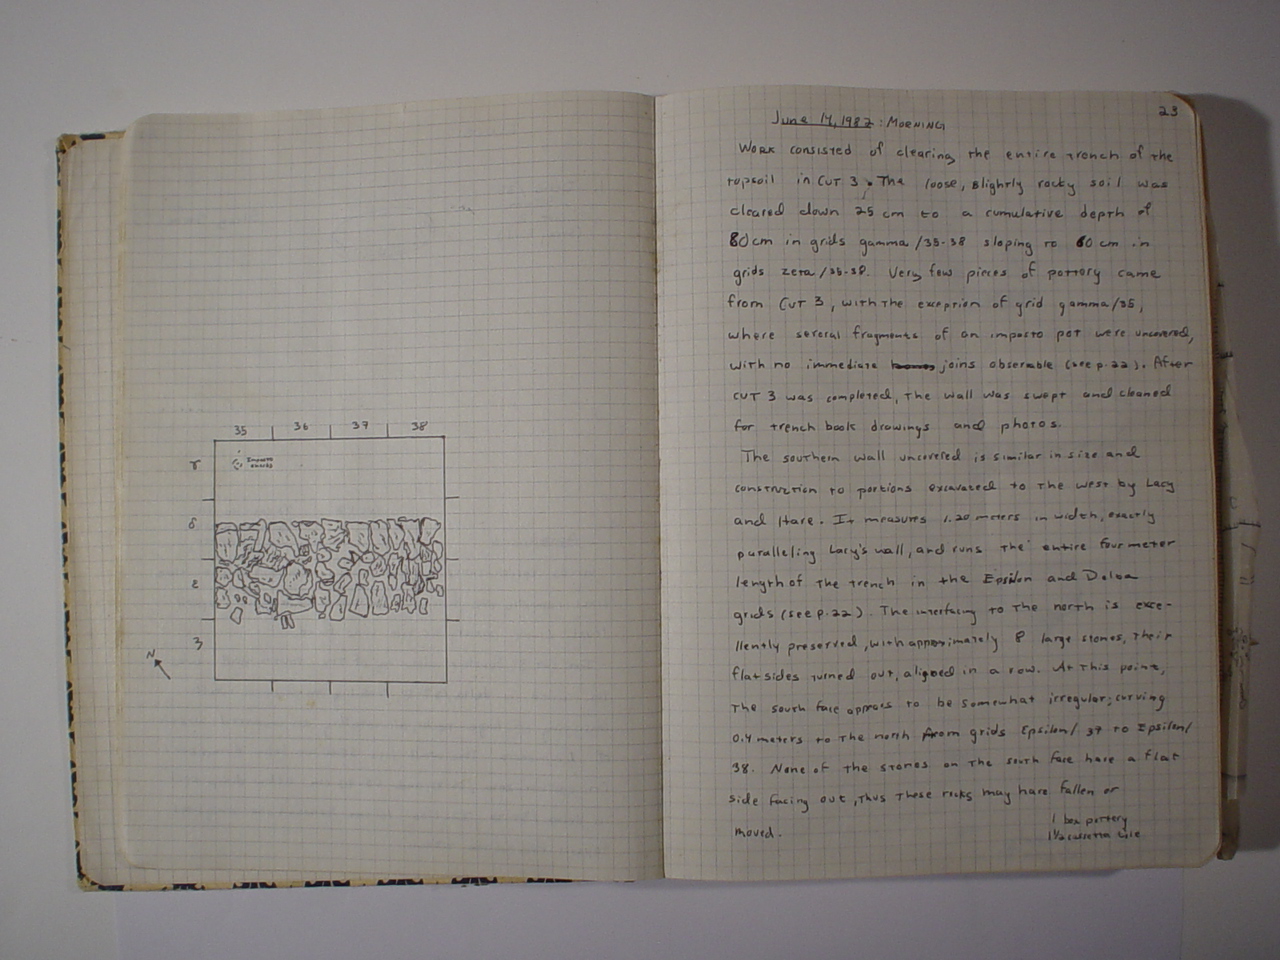 35 36 37 38
γ Impasto sherds
δ
ε
ζ
N
23
June 14, 1982: MORNING
Work consisted of clearing the entire trench of the
topsoil in CUT 3. The loose, slightly rocky soil was
cleared down 25 cm to a cumulative depth of
80cm in grids gamma/35-38 sloping to 60 cm in
grids zeta/35-38. Very few pieces of pottery came
from CUT 3, with the exception of grid gamma/35,
where several fragments of an impasto pot were uncovered,
with no immediate joins observable (see p. 22). After
CUT 3 was completed, the wall was swept and cleaned
for trench book drawings and photos.
The southern wall uncovered is similar in size and
construction to portions excavated to the west by Lacy
and Hare. It measures 1.20 meters in width, exactly
paralleling Lacy's wall, and runs the entire four meter
length of the trench in the Epsilon and Delta
grids (see p. 22). The interfacing to the north is exce-
llently preserved, with approximately 8 large stones, their
flat sides turned out, aligned in a row. At this point,
the south face appears to be somewhat irregular; curving
0.4 meters to the north from grids Epsilon/37 to Epsilon/
38. None of the stones on the south face have a flat
side facing out, thus these rocks may have fallen or
moved.
1 box pottery
1½ cassetta tile